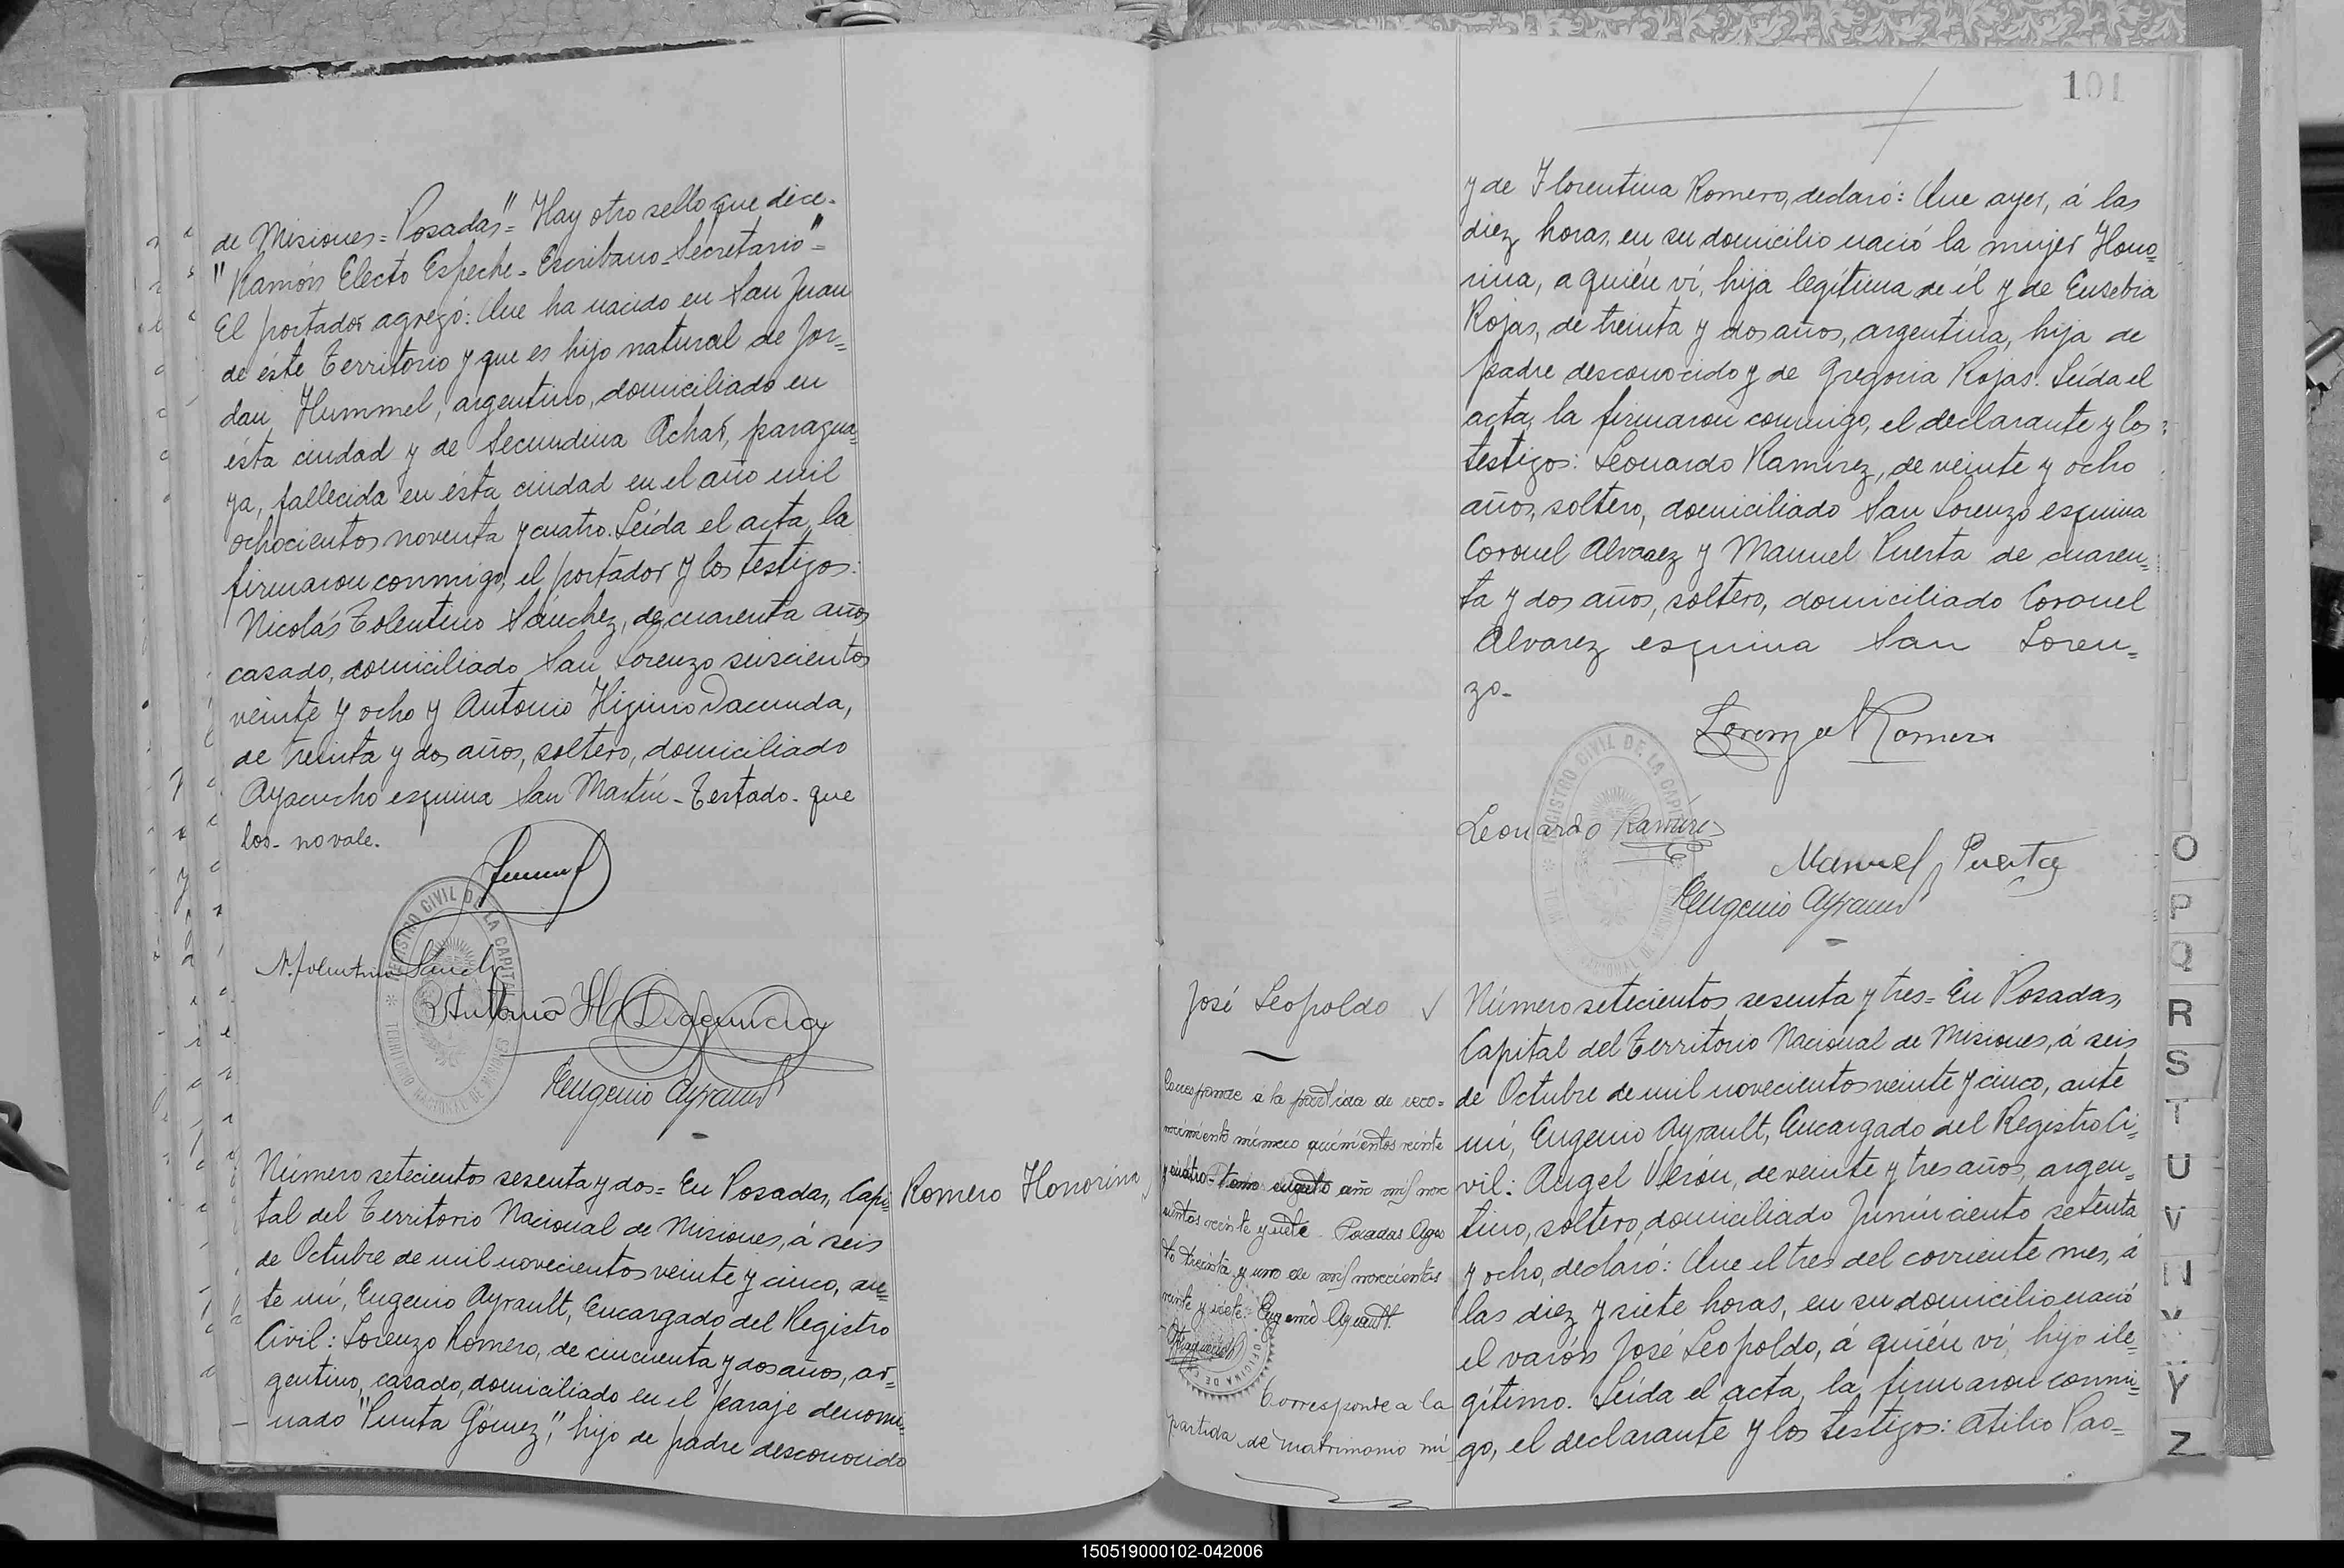 de Misiones=Posadas"= Hay otro sello que dice.
"Ramón Electo Espeche-Escribano-Secretario"=
El portador agregó: Que ha nacido en San Juan
de éste Territorio y que es hijo natural de Jor=
dan Hummel, argentino, domiciliado en
ésta ciudad y de Secundina Achar, paragua=
ya, fallecida en ésta ciudad en el año mil
ochocientos noventa y cuatro. Leída el acta, la
firmaron conmigo, el portador y los testigos:
Nicolás Tolentino Sánchez, de cuarenta años
casado, domiciliado San Lorenzo seiscientos
veinte y ocho y Antonio Higinio Dacunda,
de treinta y dos años, soltero, domiciliado
Ayacucho esquina San Martín-Testado-que
los-no vale.
REGISTRO CIVIL DE LA CAPITAL
TERRITORIO NACIONAL DE MISIONES
N. Tolentino Sanch
Antonio H. Dacunda
Eugenio Ayrault
Número setecientos sesenta y dos=En Posadas, Capi=
tal del Territorio Nacional de Misiones, á seis
de Octubre de mil novecientos veinte y cinco, an=
te mí, Eugenio Ayrault, Encargado del Registro
Civil: Lorenzo Romero, de cincuenta y dos años, ar=
gentino, casado, domiciliado en el paraje denomi=
nado "Punta Gómez", hijo de padre desconocido
Romero Honorina
101
y de Florentina Romero, declaró: Que ayer, á las
diez horas, en su domicilio nació la mujer Hono=
rina, a quién ví, hija legítima de él y de Eusebia
Rojas, de treinta y dos años, argentina, hija de
padre desconocido y de Gregoria Rojas. Leída el
acta, la firmaron conmigo, el declarante y los
testigos: Leonardo Ramírez, de veinte y ocho
años, soltero, domiciliado San Lorenzo esquina
Coronel Alvarez y Manuel Puerta de cuaren=
ta y dos años, soltero, domiciliado Coronel
Alvarez esquina San Loren=
zo-
Lorenzo Romero
REGISTRO CIVIL DE LA CAPITAL
Leonardo Ramires
Manuel Puerta
Eugenio Ayrault
José Leopoldo
Corresponde á la partida de reco=
nocimiento número quinientos veinte
y cuatro-Tomo año mil nove
cientos veinte y siete. Posadas Agos
to treinta y uno de mil novecientos
veinte y siete. Eugenio Ayrault.
Corresponde a la
partida de matrimonio nú
Número setecientos sesenta y tres=En Posadas,
Capital del Territorio Nacional de Misiones, á seis
de Octubre de mil novecientos veinte y cinco, ante
mí, Eugenio Ayrault, Encargado del Registro Ci=
vil: Angel Verón, de veinte y tres años, argen=
tino, soltero, domiciliado Junin ciento setenta
y ocho, declaró: Que el tres del corriente mes, á
las diez y siete horas, en su domicilio nació
el varón José Leopoldo, á quién ví, hijo ile=
gítimo. Leída el acta, la firmaron conmi=
go, el declarante y los testigos: Atilio Pao=
O
P
Q
R
S
T
U
V
Y
Z
150519000102-042006